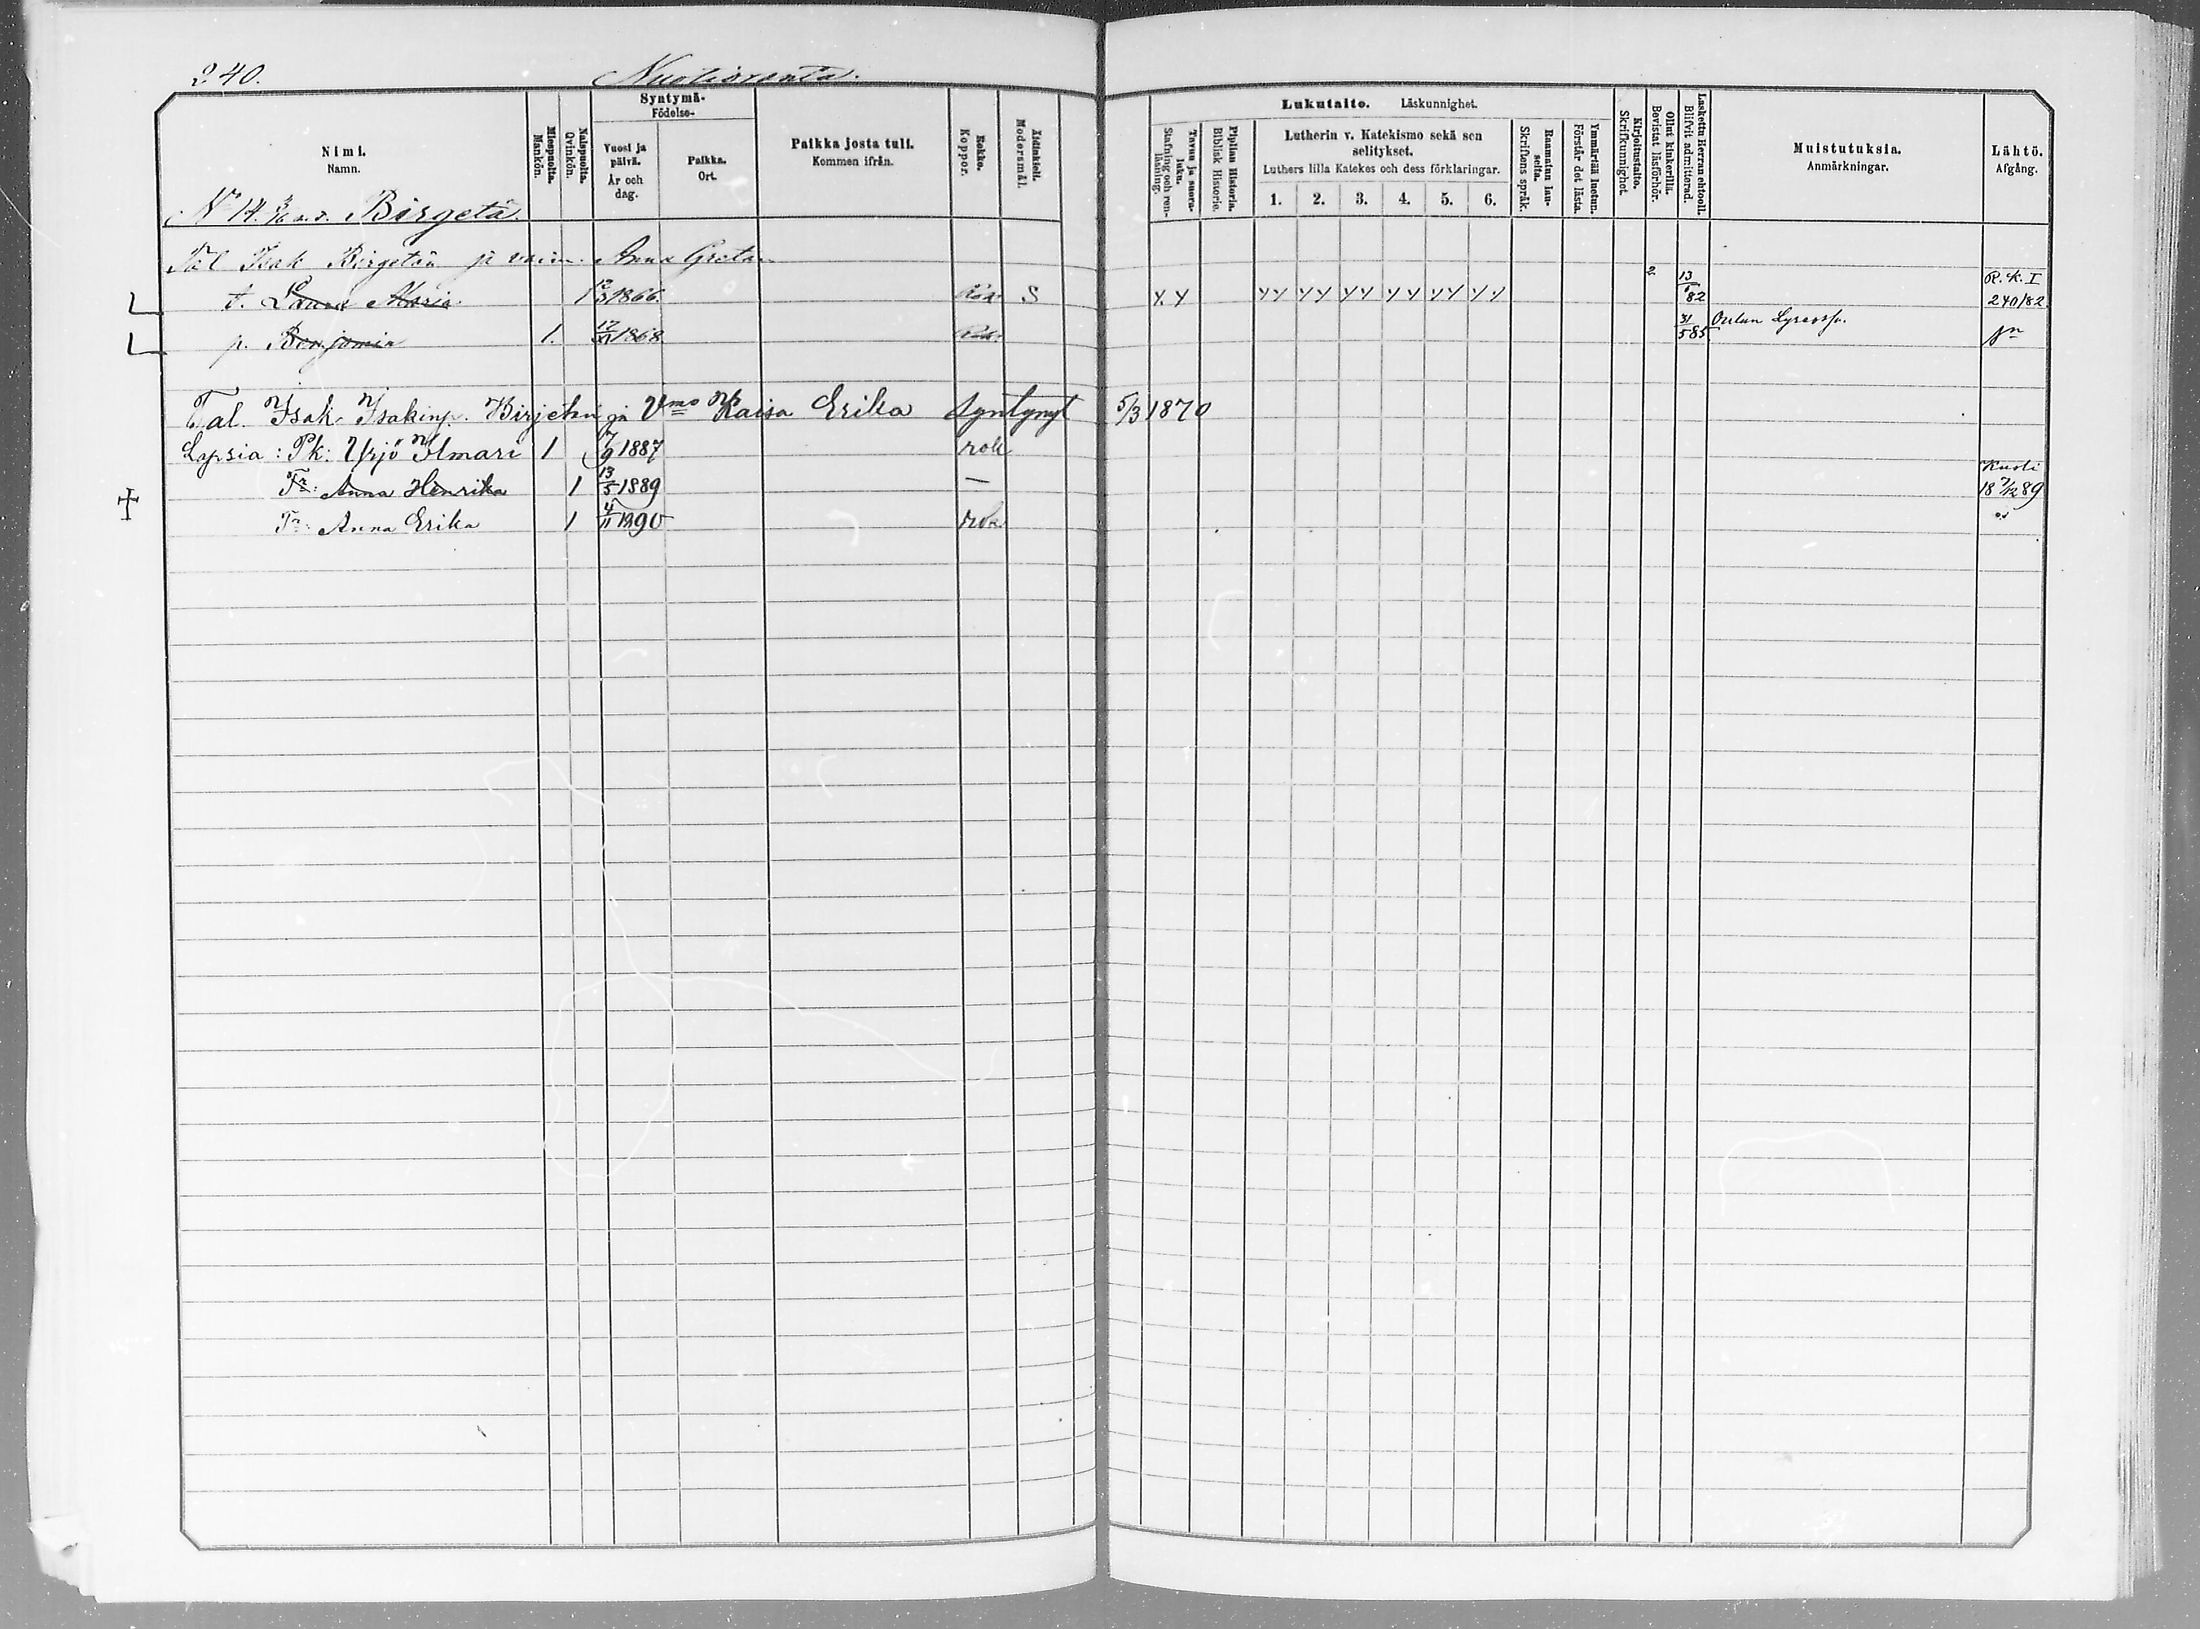 240.
Nuotioranta.
Nimi.
Namn.
Miespuolta.
Mankön.
Naispuolta.
Qvinkön.
Syntymä-
Födelse-
Vuosi ja päivä.
År och dag.
Paikka.
Ort.
Paikka josta tuli.
Kommen ifrån.
Rokko.
Koppor.
Äidinkieli.
Modersmål.
Lukutaito. Läskunnighet.
Tavuu ja suora-luku.
Stafning och ren-läsning.
Piplian Historia.
Biblisk Historie.
Lutherin v. Katekismo sekä sen selitykset.
Luthers lilla Katekes och dess förklaringar.
1. 2. 3. 4. 5. 6.
Raamatun lau-seita.
Skriftens språk.
Ymmärtää luetun.
Förstår det lästa.
Kirjoitustaito.
Skrifkunnighet.
Ollut kinkerillä.
Bevistat läsförhör.
Laskettu Herran ehtooll.
Blifvit admitterad.
Muistutuksia.
Anmärkningar.
Lähtö.
Afgång.
N 14. Birgetä.
Tal Isak Birgetän ja vaim. Anna Gretan
t. Laura Maria. 1 1866. Rok. S Y. Y YY YY YY YY YY YY 2 13 82 R. K. I 240/82
p. Benjamin 1. 12 1868 Rok. 31/5 85 Oulun Lyseossa.
Tal. Isak Isakinp. Birjetä ja Vmo Kaisa Erika syntynyt 5/3 1870
Lapsia: Pk: Yrjö Ilmari 1 7/9 1887 rok
Tr: Anna Henrika 1 13/5 1889 — Kuoli 18 7/12 89
Tr: Anna Erika 1 4/11 1890 rok